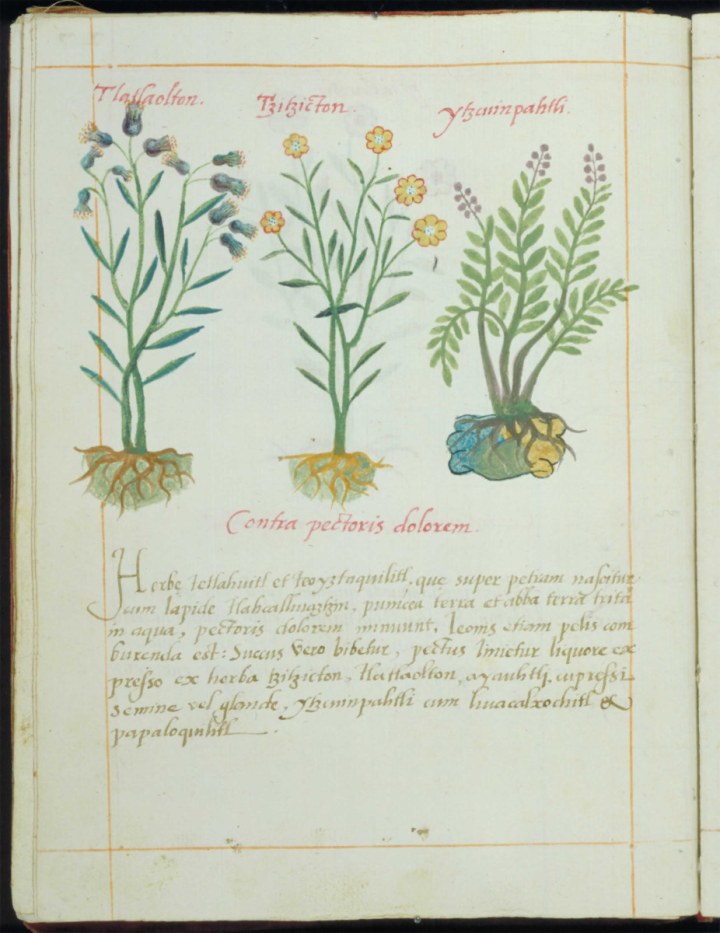 Tlatlaolton.
Tzitzicton.
Ytzcuinpahtli.
Contra pectoris dolorem.
Herbe tetlahuitl et teoyztaquilitl, que super petram nascitur
cum lapide tlahcalhuatzin, punicea terra et alba terra trita
in aqua, pectoris dolorem minuunt. Leonis etiam pelis com
burenda est: Succus vero bibetur, pectus linietur liquore ex
presso ex herba tzitzicton, tlatlaolton, ayauhtli, cupressi
semine vel glande, ytzcuinpahtli cum huacalxochitl &
papaloquilitl